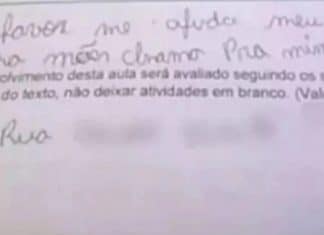 favor me ajuda meu
mães chama pra mim
olvimento desta aula será avaliado seguindo os
do texto, não deixar atividades em branco. (Val
Rua